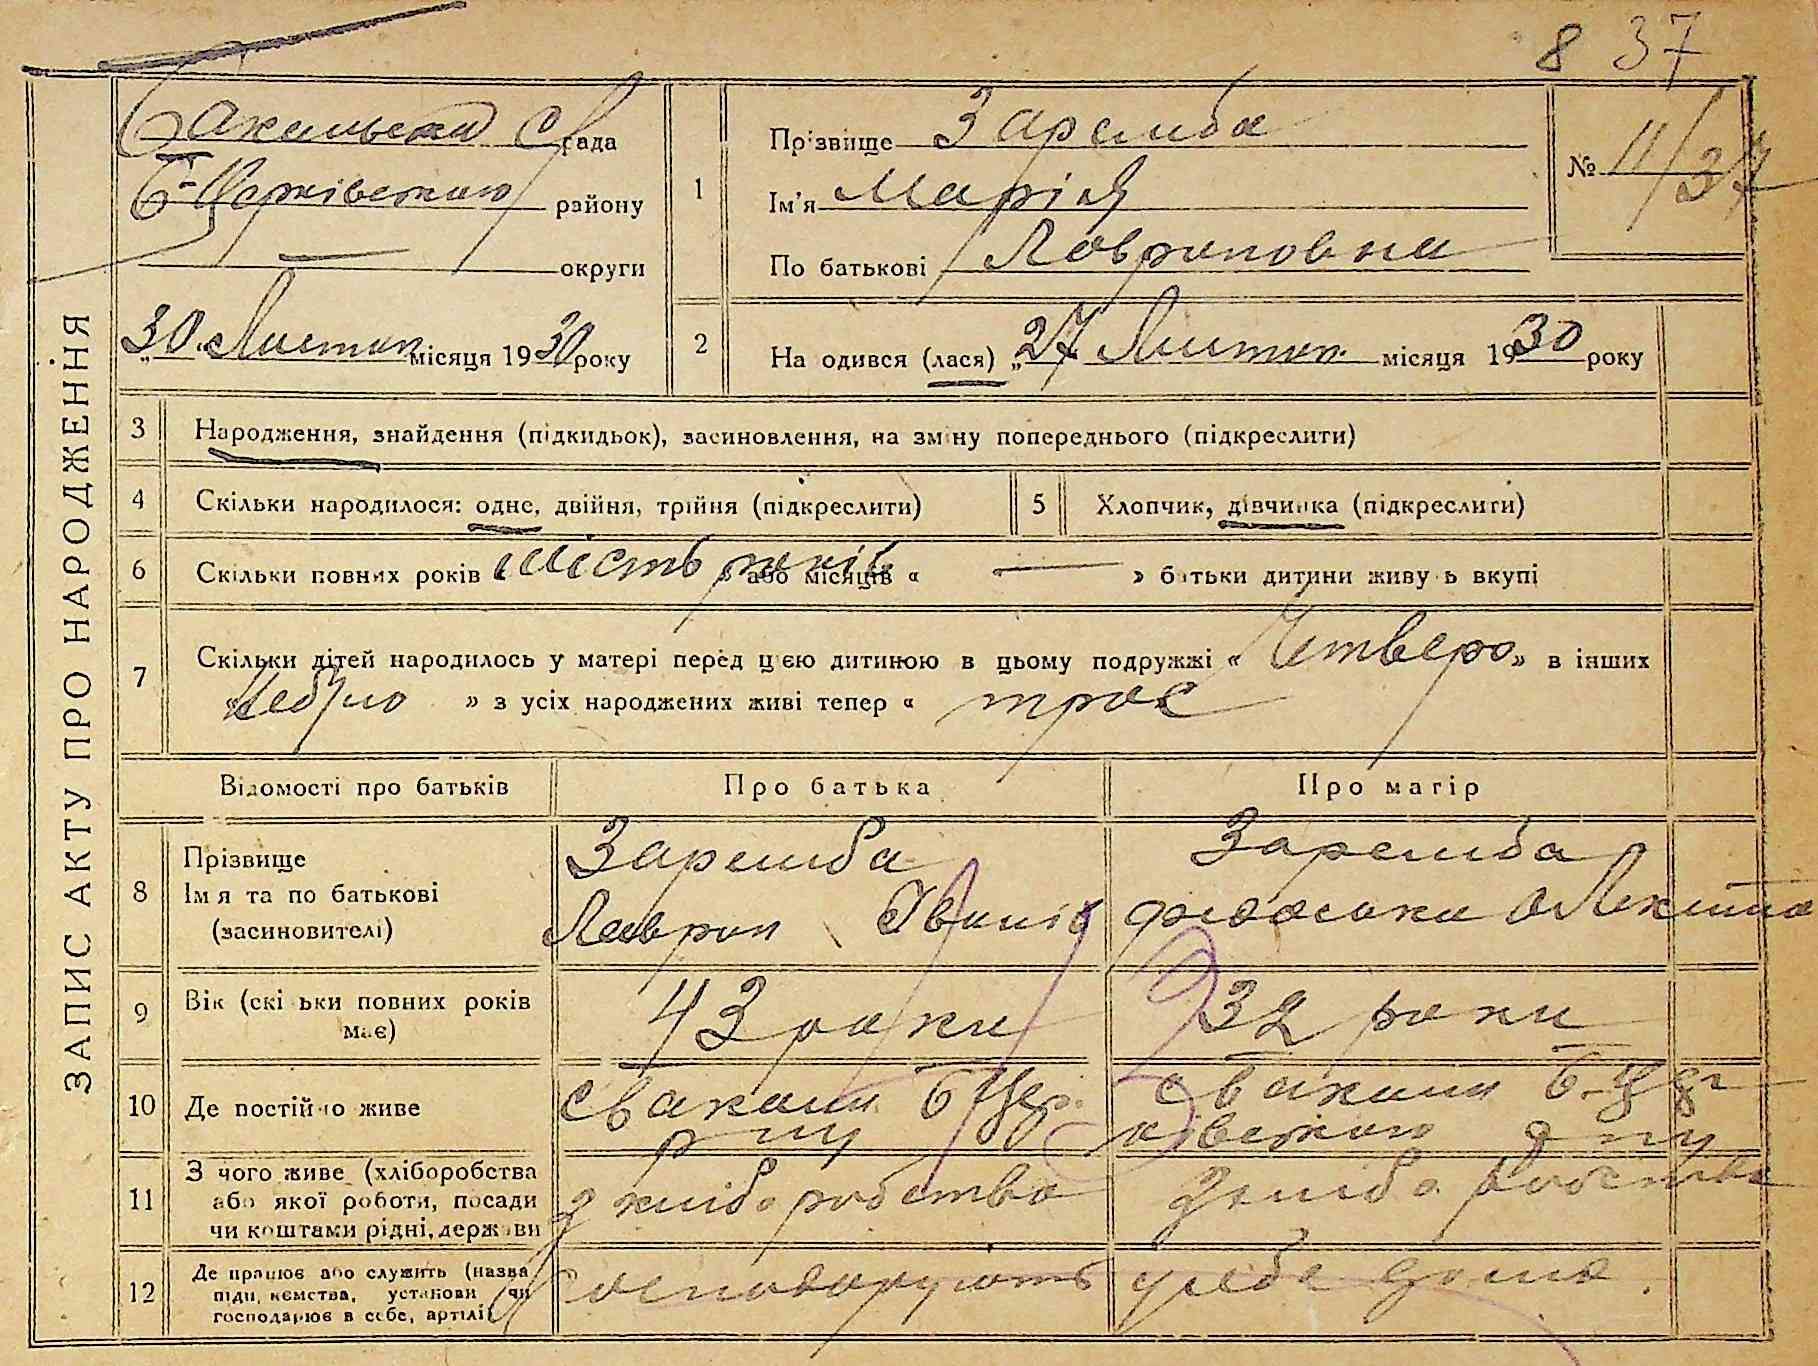 8 37
Бакальська С/рада
Б-Церківського району
— округи
„30 „ Листоп місяця 1930 року
ЗАПИС АКТУ ПРО НАРОДЖЕННЯ
1 Прізвище Заремба
Ім'я Марія
По батькові Лавриновна
№ 11/37
2 На одився (лася) „27 Листоп. місяця 1930 року
3 Народження, знайдення (підкидьок), засиновлення, на зміну попереднього (підкреслити)
4 Скільки народилося: одне, двійня, трійня (підкреслити)
5 Хлопчик, дівчинка (підкреслити)
6 Скільки повних років « шість років » або місяців « — » батьки дитини живу ь вкупі
7 Скільки дітей народилось у матері перед цією дитиною в цьому подружжі « Четверо » в інших
« Небуло » з усіх народжених живі тепер « троє
Відомості про батьків Про батька Про матір
8 Прізвище
Ім я та по батькові
(засиновителі)
Заремба
Лаврин Іванів
Заремба
9 Вік (скі ьки повних років
має)
43 роки
32 роки
10 Де постійно живе
с Бакали Б Цер.
р ну
с Бакали Б-Цер
ківського р ну
11 З чого живе (хліборобства
або якої роботи, посади
чи коштами рідні, держави
з хліборобства
з хлібо робства
12 Де працює або служить (назва
підп, иємства, установи чи
господарює в себе, артілі)
Господарують у себе дома.